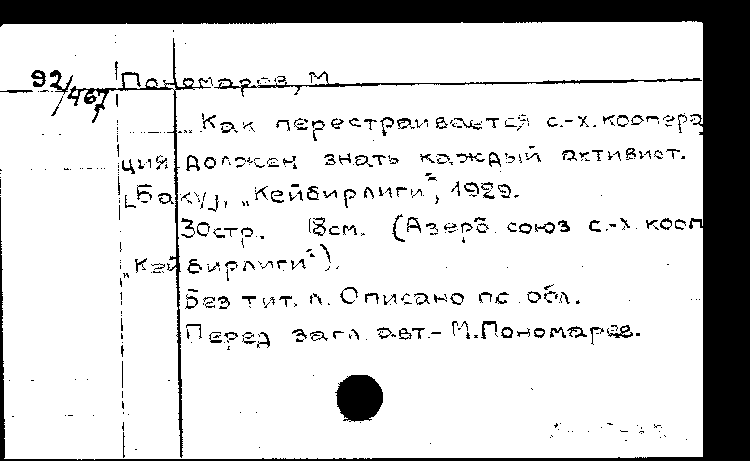 92/467
Пономарев, М.
Как перестраивается с.-х. коопера
ция должен знать каждый активист.
[Баку], „Кейбирлиги", 1929.
30стр. 18см. (Азерб. союз с.-х. кооп
„Кейбирлиги").
Без тит. л. Описано по обл.
Перед загл. авт.- М.Пономарев.